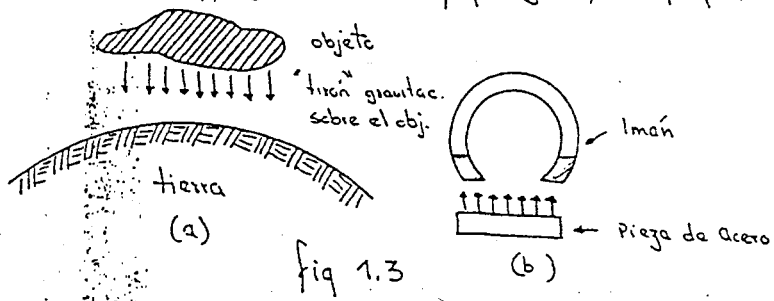 objeto
"tirón" gravitac.
sobre el obj.
tierra
(a)
Imán
Pieza de Acero
(b)
fig 1.3